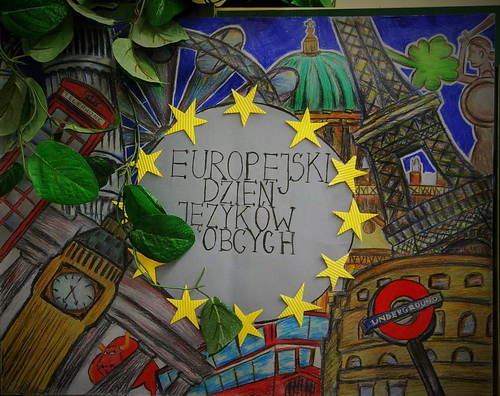 EUROPEJSKI
DZIEŃ
JĘZYKÓW
OBCYCH
UNDERGROUND